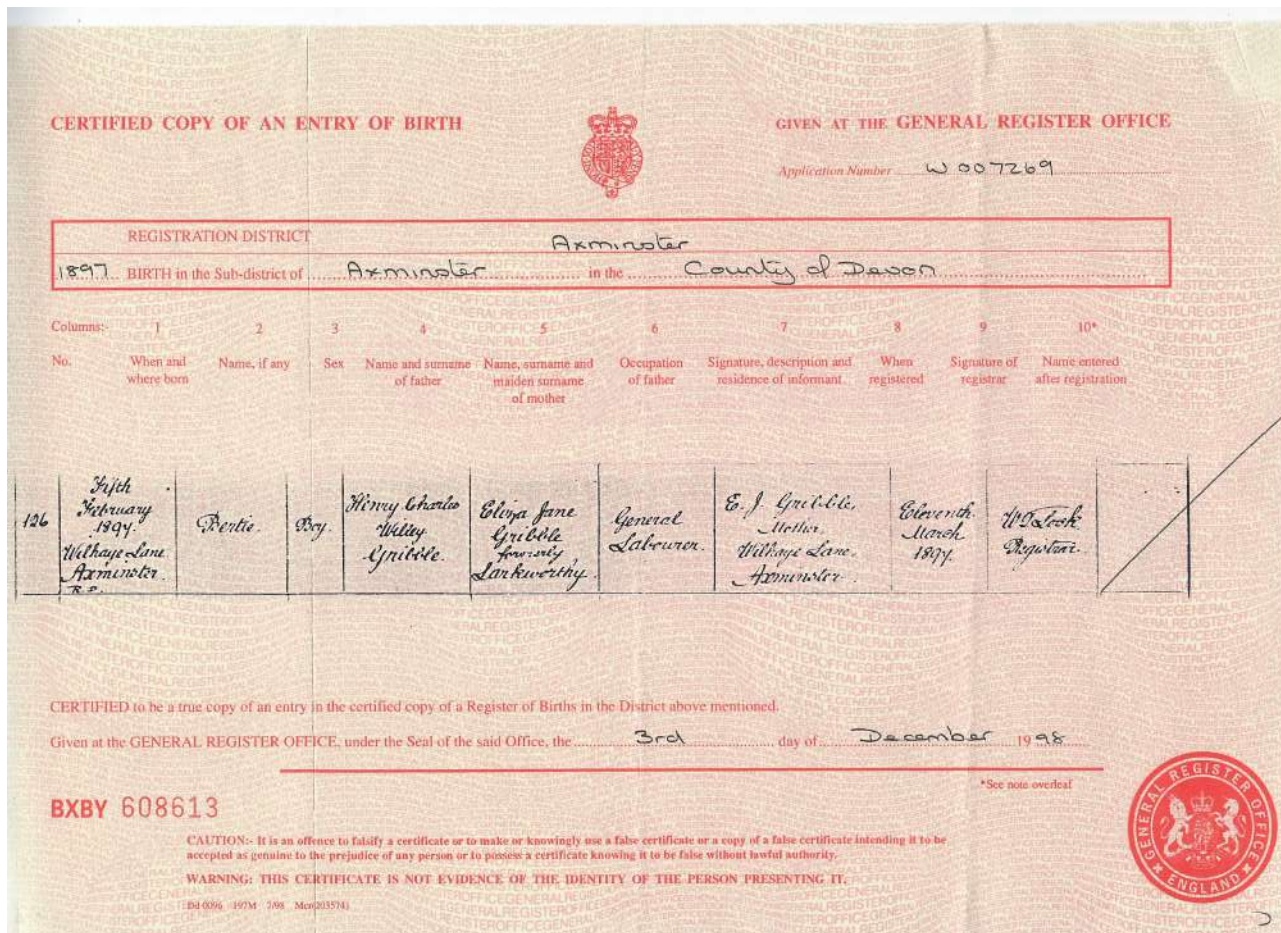 CERTIFIED COPY OF AN ENTRY OF BIRTH
GIVEN AT THE GENERAL REGISTER OFFICE
Application Number W 007269
REGISTRATION DISTRICT Axminster
1897 BIRTH in the Sub-district of Axminster in the County of Devon
Columns:- 1 2 3 4 5 6 7 8 9 10*
No.
When and
where born
Name, if any
Sex
Name and surname
of father
Name, surname and
maiden surname
of mother
Occupation
of father
Signature, description and
residence of informant
When
registered
Signature of
registrar
Name entered
after registration
126
Fifth
February
1897.
Wilhaye Lane
Axminster.
R.D.
Bertie.
Boy.
Henry Charles
Willey
Gribble.
Eliza Jane
Gribble
formerly
Larkworthy.
General
Labourer.
E. J. Gribble,
Mother.
Wilhaye Lane.
Axminster.
Eleventh
March
1897.
Registrar.
CERTIFIED to be a true copy of an entry in the certified copy of a Register of Births in the District above mentioned.
Given at the GENERAL REGISTER OFFICE, under the Seal of the said Office, the 3rd day of December 1998
*See note overleaf
BXBY 608613
CAUTION:- It is an offence to falsify a certificate or to make or knowingly use a false certificate or a copy of a false certificate intending it to be
accepted as genuine to the prejudice of any person or to possess a certificate knowing it to be false without lawful authority.
WARNING: THIS CERTIFICATE IS NOT EVIDENCE OF THE IDENTITY OF THE PERSON PRESENTING IT.
GENERAL REGISTER OFFICE
ENGLAND